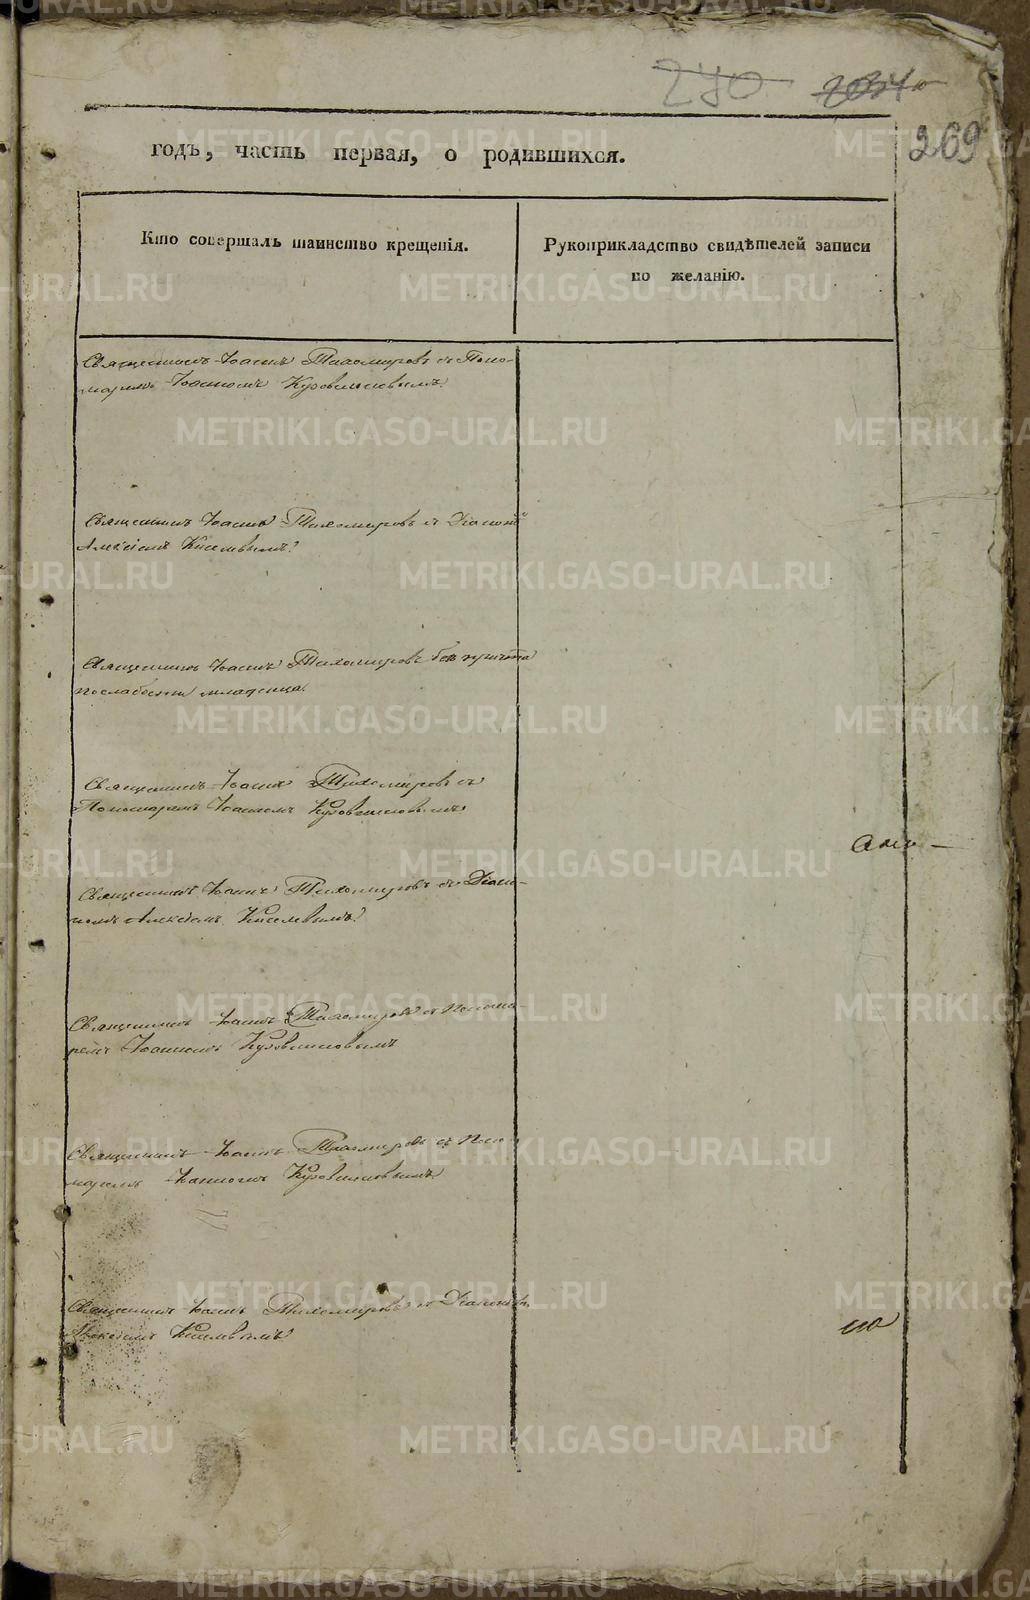 270
269
годъ, часть первая, о родившихся.
Кто совершалъ таинство крещенія.
Рукоприкладство свидѣтелей записи
по желанію.
Священникъ Іоаннъ Тихомировъ съ Поно-
маремъ Іоанномъ
Священникъ Іоаннъ Тихомировъ съ Діакономъ
Алексіемъ Киселевымъ.
Священникъ Іоаннъ Тихомировъ безъ причта
по слабости младенца.
Священникъ Іоаннъ Тихомировъ съ
Пономаремъ Іоанномъ
Священникъ Іоаннъ Тихомировъ съ Діако-
номъ Алексіемъ Киселевымъ.
Священникъ Іоаннъ Тихомировъ съ Понома-
ремъ Іоанномъ
Священникъ Іоаннъ Тихомировъ съ Поно-
маремъ Іоанномъ
Священникъ Іоаннъ Тихомировъ съ Діакономъ
Алексіемъ Киселевымъ
METRIKI.GASO-URAL.RU